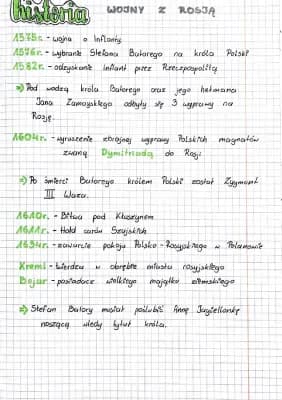 historia WOJNY Z ROSJĄ
1575r. - wojna o Inflanty
1576r. - wybranie Stefana Batorego na króla Polski
1582r. - odzyskanie Inflant przez Rzeczpospolitą
=> Pod wodzą króla Batorego oraz jego hetmana
Jana Zamoyskiego odbyły się 3 wyprawy na
Rosję.
1604r. - wyruszenie zbrojnej wyprawy Polskich magnatów
zwaną Dymitriadą do Rosji
=> Po śmierci Batorego królem Polski został Zygmunt
III Waza.
1610r. - Bitwa pod Kłuszynem
1611r. - Hołd carów Szujskich
1634r. - zawarcie pokoju Polsko-Rosyjskiego w Polanowie
Kreml - twierdza w obrębie miasta rosyjskiego
Bojar - posiadacz wielkiego majątku ziemskiego
=> Stefan Batory musiał poślubić Annę Jagiellonkę
noszącą wtedy tytuł króla.